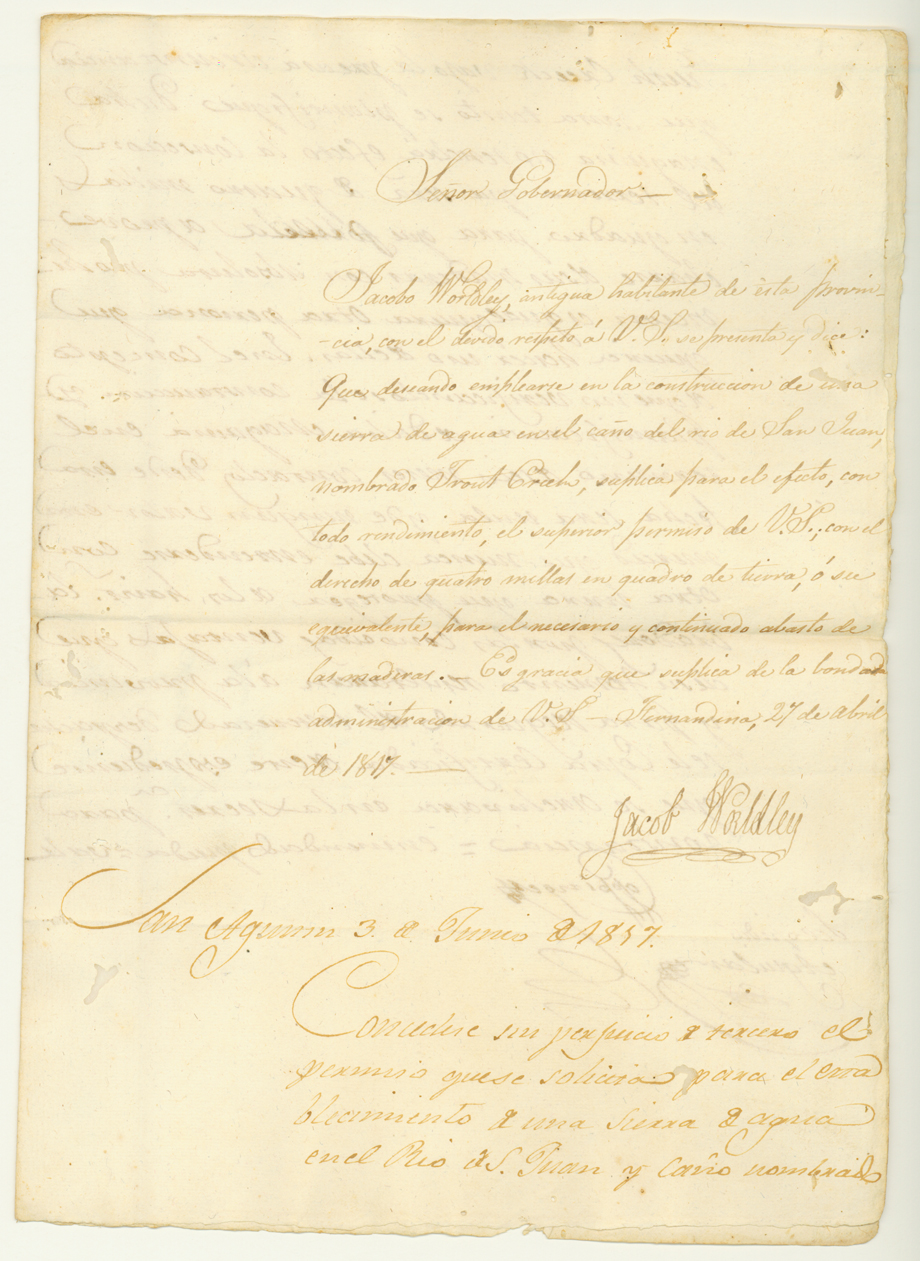 Señor Gobernador.—
Jacobo Worldley, antiguo habitante de ésta Provin-
-cia, con el devido respéto á V.S. se presenta y dice:
Que deseando emplearse en la construccion de una
sierra de agua en el caño del rio de San Juan,
nombrado Trout Creek, suplica para el efecto, con
todo rendimiento, el superior permiso de V.S., con el
derecho de quatro millas en quadro de tierra, ó su
equivalente, para el necesario y continuado abasto de
las maderas.— Es gracia que suplica de la bondad
administracion de V.S — Fernandina, 27 de abril
de 1817.—
Jacob Worldley
San Agustin 3. de Junio de 1817.
Concedese sin perjuicio de tercero el
permiso que se solicita para el esta
blecimiento de una sierra de agua
en el Rio de S. Juan y caño nombrado